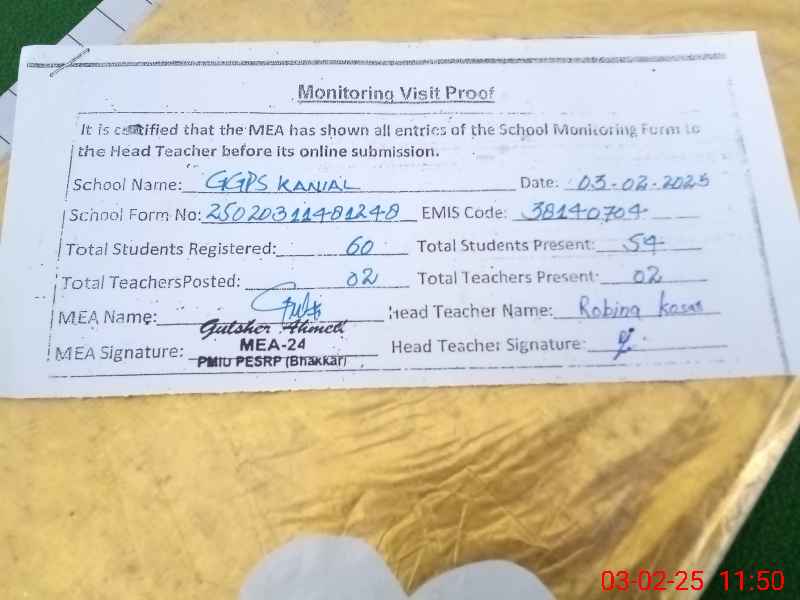 Monitoring Visit Proof
It is certified that the MEA has shown all entries of the School Monitoring Form to
the Head Teacher before its online submission.
School Name: GGPS KANIAL Date: 03-02-2025
School Form No: 25020311481248 EMIS Code: 38140704
Total Students Registered: 60 Total Students Present: 54
Total TeachersPosted: 02 Total Teachers Present: 02
MEA Name: Head Teacher Name: Robina
Gulsher Ahmed
MEA Signature: MEA-24 Head Teacher Signature:
PMIU PESRP (Bhakkar)
03-02-25 11:50